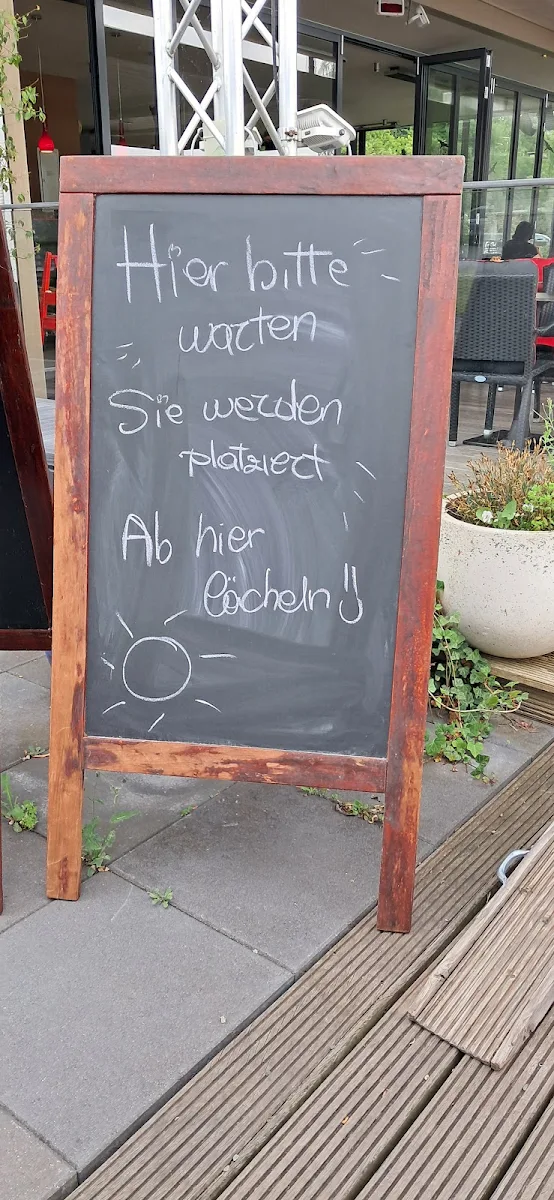 Hier bitte
warten
Sie werden
platziert
Ab hier
lächeln